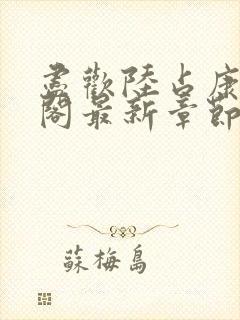 盡歡陸占康
閣最新章節
蘇梅島